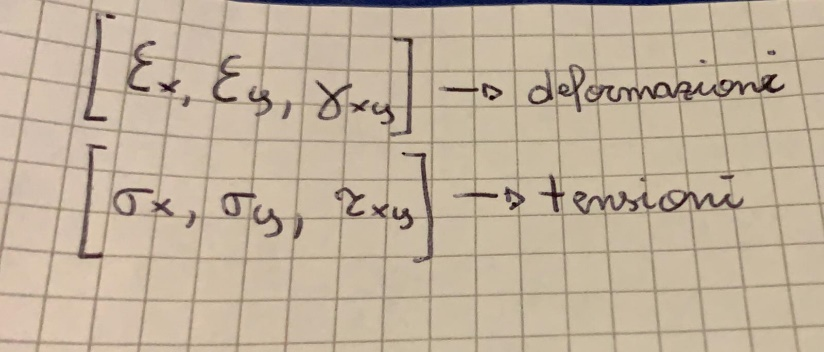 [εx, εy, γxy] → deformazioni
[σx, σy, τxy] → tensioni